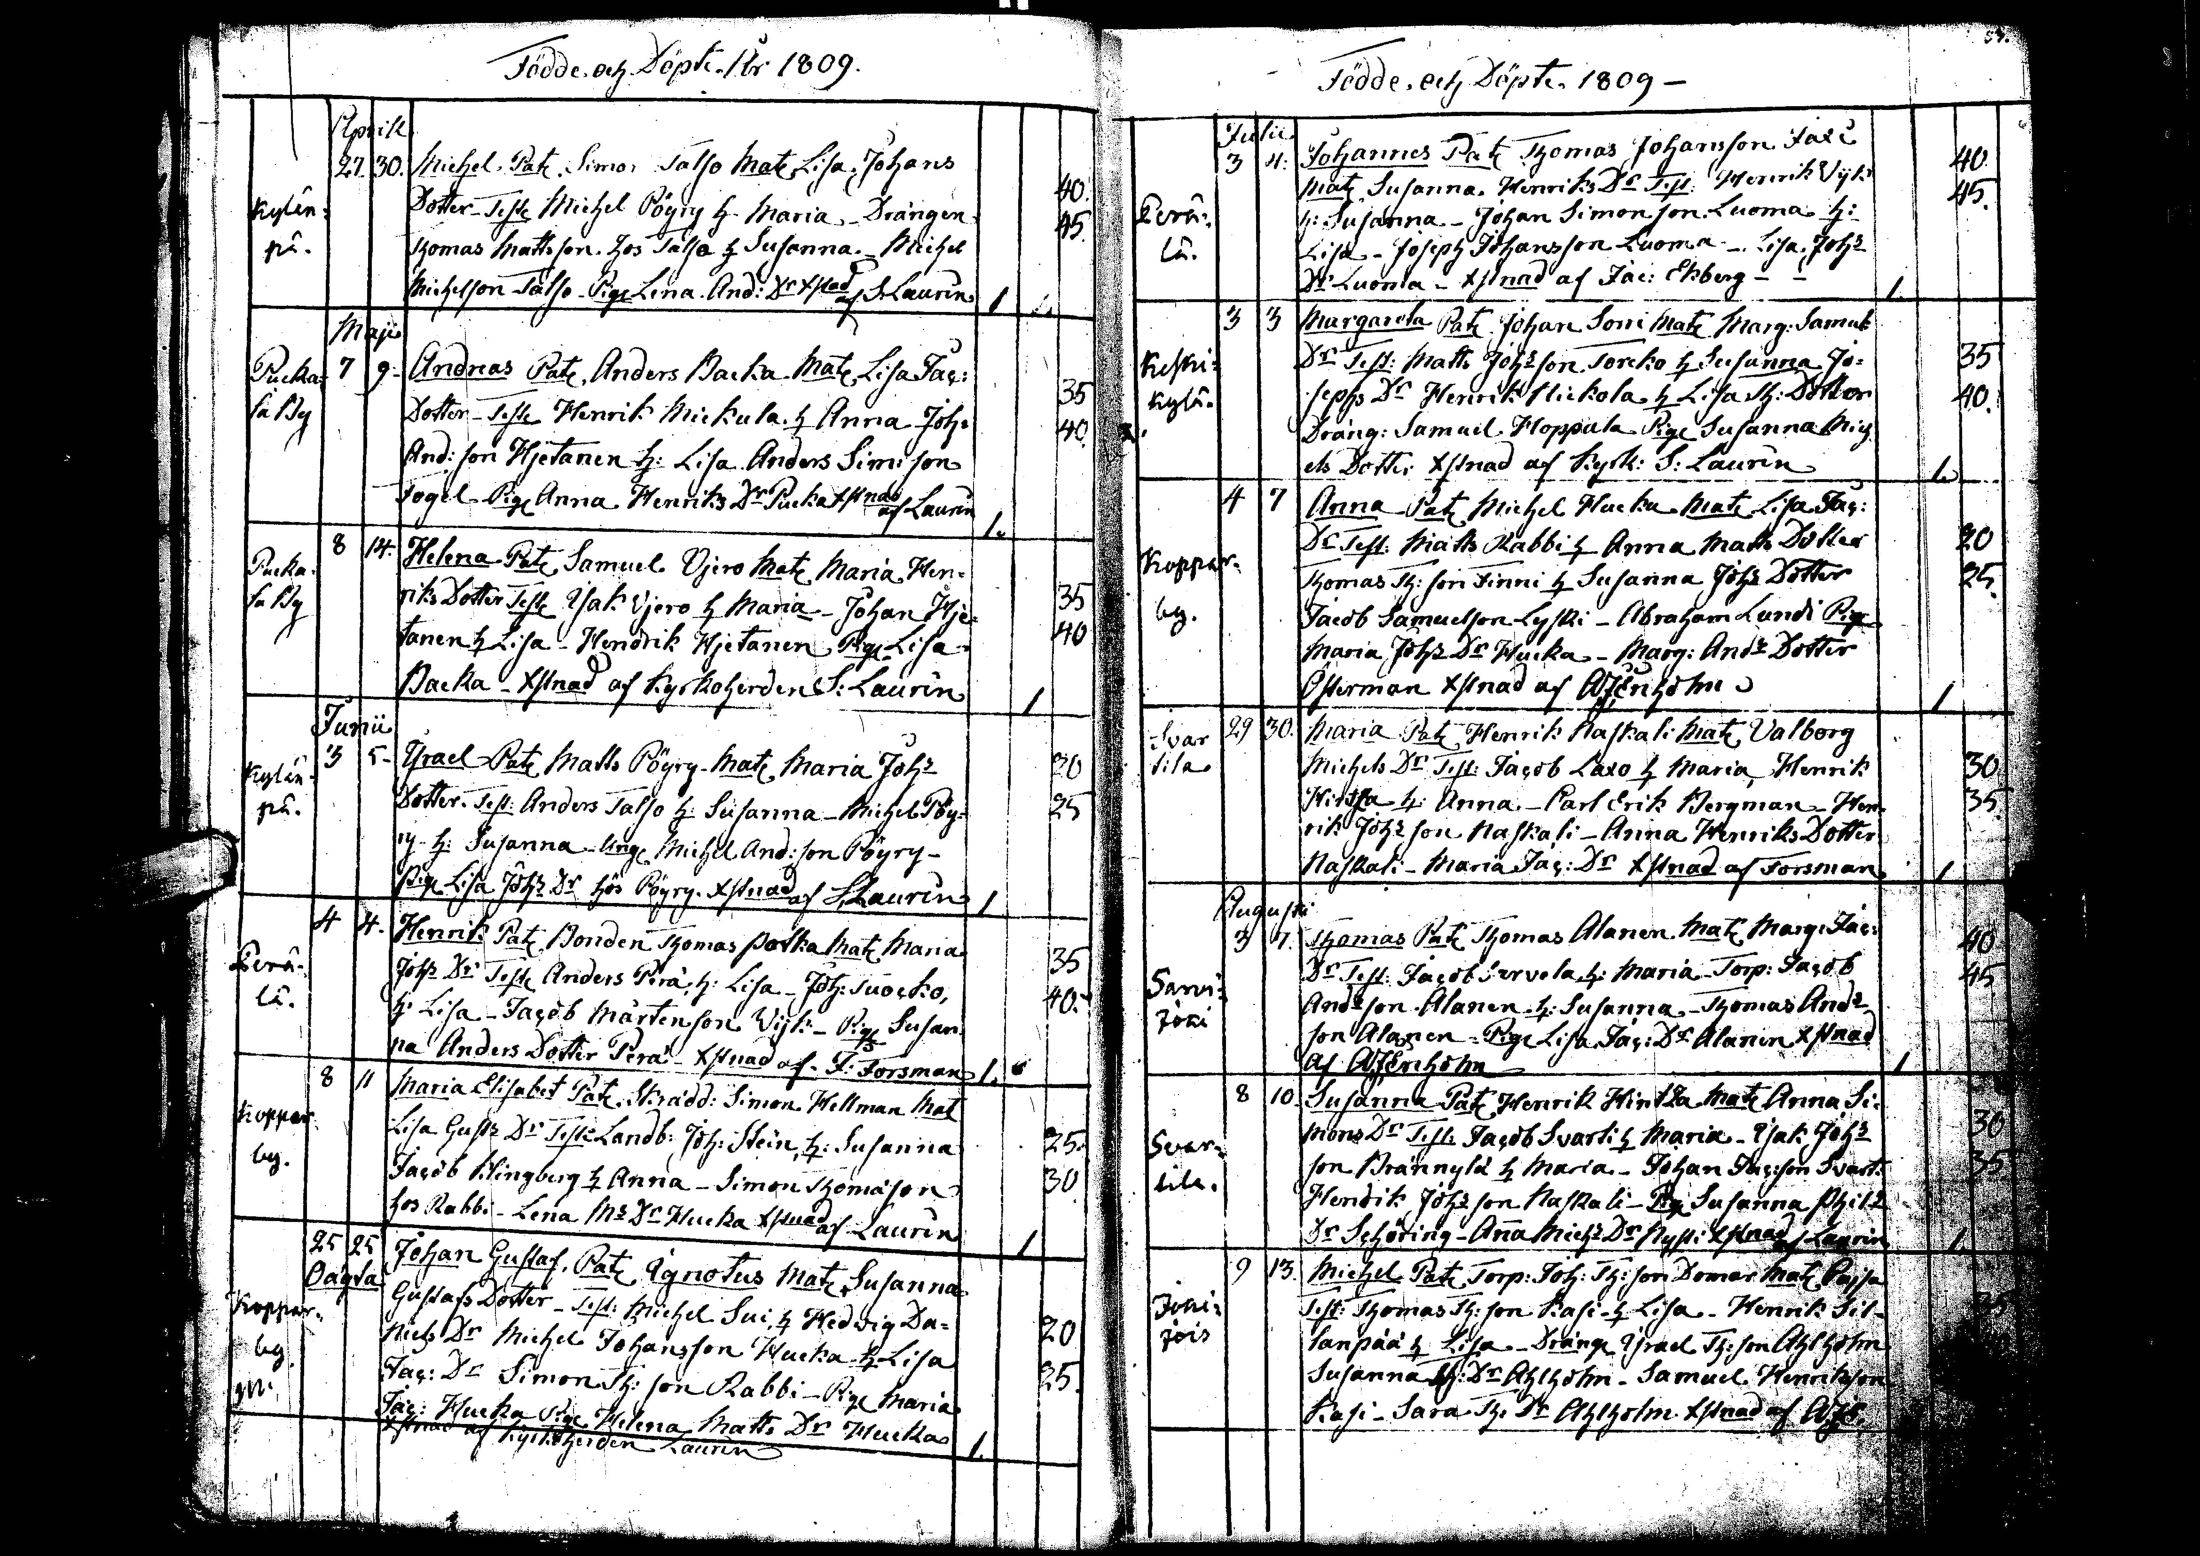 Födde och Döpte År 1809.
April
27 30. Michel Pat. Simon Talso Mat. Lisa Johans
Dotter Test. Michel Pöyry h. Maria - Drängen 40.
Kylän=
pä.
Thomas Mattsson hos Talso h. Susanna - Michel 45.
Michelson Talso - Pig. Lena And: Dr Xstnad af S. Laurin 1
Maji
Pucka=
la By
7 9. Andreas Pat. Anders Backa Mat. Lisa Jac:
Dotter - Test. Henrik Mickula h. Anna Joh: 35
And: son Hjetanen h: Lisa Anders Simison 40.
Fogel Pig. Anna Henriks Dr Pucka Xstnad af Laurin 1.
Pucka=
la By
8 14. Helena Pat. Samuel Ujero Mat. Maria Hen=
riks Dotter Test. Isak Ujero h Maria - Johan Hje= 35
tanen h Lisa - Hendrik Hjetanen Pig. Lisa 40
Backa - Xstnad af Kyrkoherden S: Laurin 1
Junii
Kylän=
pä.
3 5. Israel Pat. Matts Pöyry Mat. Maria Johs 20
Dotter. Test: Anders Talso h: Susanna - Michel Pöy= 25
ry h: Susanna - Ung. Michel And: son Pöyry -
Pig. Lisa Johs Dr hos Pöyry. Xstnad af S. Laurin 1
Perä=
lä.
4 4. Henrik Pat. Bonden Thomas Potka Mat. Maria
Johs Dr Test. Anders Perä h: Lisa - Joh: Tuocko, 35
h: Lisa - Jacob Mårtenson Wijk - Pig. Susan 40.
na Anders Dotter Perä - Xstnad af F: Forsman 1.
Koppar
by.
8 11 Maria Elisabet Pat. Skrädd: Simon Hellman Mat
Lisa Gusts Dr Test: Landb: Joh: Stein, h: Susanna 25.
Jacob Klingberg h Anna - Simon Thomason 30
hos Rabbi - Lena Ms Dr Hucka Xstnad af Laurin 1
25 25
Oägta
Koppar=
by.
Johan Gustaf. Pat. Ignotus Mat. Susanna
Gustafs Dotter - Test: Michel Sui, h Hedvig Da=
niels Dr Michel Johansson Hucka h Lisa 20
Jac: Dr Simon Th: son Rabbi - Pig. Maria 25.
Jac: Hucka Pig. Helena Matts Dr Hucka 1.
Xstnad af Kyrkoherden Laurin
Födde och Döpte 1809 -
Julii
Perä=
lä.
3 4. Johannes Pat. Thomas Johansson Jaxi 40
Mat. Susanna Henriks Dr Test: Henrik Vijk 45.
h: Susanna - Johan Simonson Luoma h:
Lisa - Joseph Johansson Luoma - Lisa Johs
Dr Luoma - Xstnad af Jac: Ekberg - 1
Keski=
kylä.
3 3 Margareta Pat. Johan Sorri Mat. Marg: Samuls
Dr Test: Matts Johs son Torcko h Susanna Jo= 35
sephs Dr Henrik Nickola h Lisa Th: Dotter 40.
Dräng: Samuel Hoppula Pig. Susanna Mich
els Dotter Xstnad af Kyrk: S: Laurin 1.
Koppar=
by.
4 7 Anna Pat. Michel Hucka Mat. Lisa Jac:
Dr Test: Matts Rabbi h Anna Matts Dotter 20
Thomas Th: son Finni h Susanna Johs Dotter 25.
Jacob Samuelson Lyski - Abraham Lundi Pig.
Maria Johs Dr Hucka - Marg: Ands Dotter
Österman Xstnad af AJEnholm 1
Svar
tila
29 30. Maria Pat. Henrik Naskali Mat. Valborg
Michels Dr Test: Jacob Laxo h Maria Henrik 30.
Hintsa h: Anna - Carl Erik Bergman - Hen 35.
rik Johs son Naskali - Anna Henriks Dotter
Naskali - Maria Jac: Dr Xstnad af Forsman 1
Augusti
Sarvi=
joki
3 7. Thomas Pat. Thomas Alanen Mat. Marg. Jac: 40
Dr Test: Jacob Survela h: Maria - Torp: Jacob 45
Ands son Alanen h: Susanna - Thomas Ands
son Alanen - Pig. Lisa Jac: Dr Alanen Xstnad
af AJEnholm 1
Svar=
tila.
8 10 Susanna Pat. Henrik Hintza Mat. Anna Si=
mons Dr Test: Jacob Svarti h Maria - Isak Johs 30
son Brännylä h Maria - Johan Jac: son Svart: 35
Hendrik Johs son Naskali - Pig. Susanna Phils
Dr Schöring - Anna Michs Dr Nysti Xstnad af Laurin 1.
Joki=
jois
9 13. Michel Pat. Torp: Joh: Th: son Domar Mat. Cajsa
Test: Thomas Th: son Kasi h Lisa - Henrik Sil= 25
lanpää h Lisa - Dräng. Israel Th: son Ahlholm
Susanna Th: Dr Ahlholm - Samuel Henrikson
Kasi - Sara Th: Dr Ahlholm Xstnad af AJE.